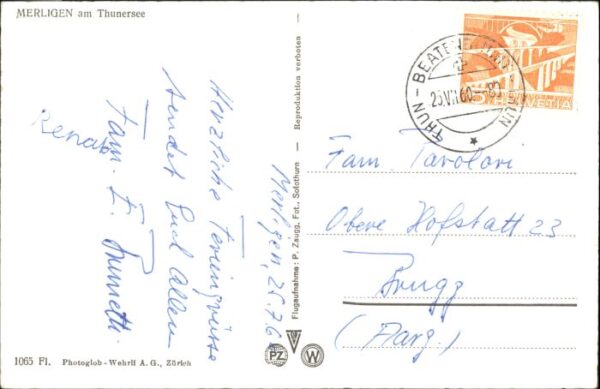 MERLIGEN am Thunersee
Merligen, 25.7.6
Herzliche Feriengrüsse
sendet Euch Allen
Fam. E.
Renato
Flugaufnahme: P. Zaugg, Fot., Solothurn
Reproduktion verboten
THUN - BEATENBERG
25.VII.60.
5 HELVETIA
Fam. Tavolori
Obere Hofstatt 23
Brugg
(Aarg.)
PZ
W
1065 Fl. Photoglob - Wehrli A. G., Zürich